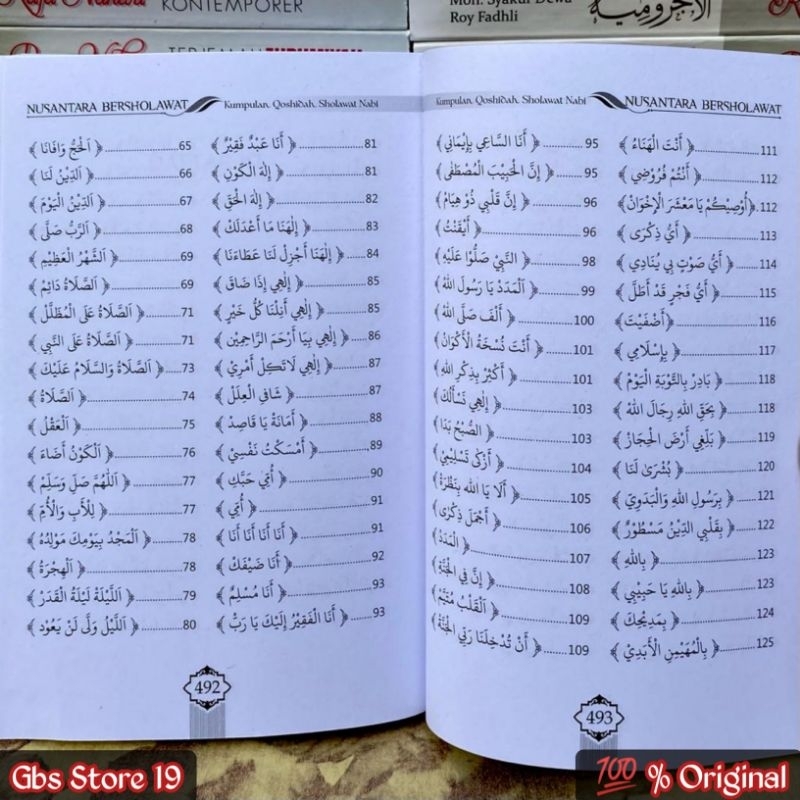 KONTEMPORER
Moh. Syakur Dewa
Roy Fadhli
الآجرومية
NUSANTARA BERSHOLAWAT
Kumpulan Qoshidah Sholawat Nabi
﴿ اَلْحَجُّ وَافَانَا ﴾ 65
﴿ اَلدِّيْنُ لَنَا ﴾ 66
﴿ اَلدِّيْنُ الْيَوْمَ ﴾ 67
﴿ اَلرَّبُّ صَلَّى ﴾ 68
﴿ اَلشَّهْرُ الْعَظِيْمِ ﴾ 69
﴿ اَلصَّلَاةُ دَائِمْ ﴾ 69
﴿ اَلصَّلَاةُ عَلَى الْمُظَلَّلْ ﴾ 71
﴿ اَلصَّلَاةُ عَلَى النَّبِي ﴾ 71
﴿ اَلصَّلَاةُ وَالسَّلَامُ عَلَيْكَ ﴾ 73
﴿ اَلصَّلَاةُ ﴾ 74
﴿ اَلْعَقْلُ ﴾ 75
﴿ اَلْكَوْنُ أَضَاءَ ﴾ 76
﴿ اَللّٰهُمَّ صَلِّ وَسَلِّمْ ﴾ 77
﴿ لِلْأَبِ وَالْأُمِّ ﴾ 77
﴿ اَلْمَجْدُ بِيَوْمِكَ مَوْلِدُهُ ﴾ 78
﴿ اَلْهِجْرَةُ ﴾ 78
﴿ اَللَّيْلَةُ لَيْلَةُ الْقَدْرْ ﴾ 79
﴿ اَللَّيْلُ وَلَّى لَنْ يَعُوْد ﴾ 80
﴿ أَنَا عَبْدٌ فَقِيْرٌ ﴾ 81
﴿ إِلٰهَ الْكَوْنِ ﴾ 81
﴿ إِلٰهَ الْحَقِّ ﴾ 82
﴿ إِلٰهَنَا مَا أَعْدَلَكَ ﴾ 83
﴿ إِلٰهَنَا أَجْزِلْ لَنَا عَطَاءَنَا ﴾ 84
﴿ إِلٰهِي إِذَا ضَاقَ ﴾ 85
﴿ إِلٰهِي أَنِلْنَا كُلَّ خَيْرٍ ﴾ 85
﴿ إِلٰهِي بِيَا أَرْحَمَ الرَّاحِمِيْنَ ﴾ 86
﴿ إِلٰهِي لَاتَكِلْ أَمْرِيْ ﴾ 87
﴿ شَافِي الْعِلَلْ ﴾ 87
﴿ أَمَانَةْ يَا قَاصِدْ ﴾ 88
﴿ أَمْسَكْتُ نَفْسِيْ ﴾ 89
﴿ أُمِّي حَبَّكِ ﴾ 90
﴿ أُمِّي ﴾ 91
﴿ أَنَا أَنَا أَنَا أَنَا ﴾ 91
﴿ أَنَا ضَيْفَكْ ﴾ 92
﴿ أَنَا مُسْلِمٌ ﴾ 93
﴿ أَنَا الْفَقِيْرُ إِلَيْكَ يَا رَبُّ ﴾ 93
492
Kumpulan Qoshidah Sholawat Nabi
NUSANTARA BERSHOLAWAT
﴿ أَنَا السَّاعِي بِإِيْمَانِي ﴾ 95
﴿ إِنَّ الْحَبِيْبَ الْمُصْطَفَى ﴾ 95
﴿ إِنَّ قَلْبِي ذُوْ هِيَامْ ﴾ 96
﴿ أَيْقَنْتُ ﴾ 96
﴿ النَّبِي صَلُّوْا عَلَيْهِ ﴾ 98
﴿ اَلْمَدَدْ يَا رَسُوْلَ اللهْ ﴾ 99
﴿ أَلْفَ صَلَّى اللهْ ﴾ 100
﴿ أَنْتَ نُسْخَةُ الْأَكْوَانْ ﴾ 101
﴿ أَكْثِرْ بِذِكْرِ اللهِ ﴾ 101
﴿ إِلٰهِي نَسْأَلُكَ ﴾ 103
﴿ الصُّبْحُ بَدَا ﴾ 103
﴿ أَزْكَى تَسْلِيْمِي ﴾ 104
﴿ أَلَا يَا الله بِنَظْرَةْ ﴾ 105
﴿ أَجْمَلْ ذِكْرَى ﴾ 106
﴿ اَلْمَدَدْ ﴾ 107
﴿ إِنَّ فِي الْجَنَّةِ ﴾ 108
﴿ اَلْقَلْبُ مُتَيَّمْ ﴾ 109
﴿ أَنْ تُدْخِلَنَا رَبِّي الْجَنَّةْ ﴾ 109
﴿ أَنْتَ الْهَنَاءُ ﴾ 111
﴿ أَنْتُمْ فُرُوْضِي ﴾ 112
﴿ أُوْصِيْكُمْ يَا مَعْشَرَ الْإِخْوَانْ ﴾ 112
﴿ أَيُّ ذِكْرَى ﴾ 113
﴿ أَيُّ صَوْتٍ بِي يُنَادِي ﴾ 114
﴿ أَيُّ فَجْرٍ قَدْ أَطَلَّ ﴾ 115
﴿ أَضْفَيْتَ ﴾ 116
﴿ بِإِسْلَامِي ﴾ 117
﴿ بَادِرْ بِالتَّوْبَةِ الْيَوْمْ ﴾ 118
﴿ بِحَقِّ اللهِ رِجَالَ اللهْ ﴾ 118
﴿ بَلِّغِي أَرْضَ الْحِجَازْ ﴾ 119
﴿ بُشْرَىٰ لَنَا ﴾ 120
﴿ بِرَسُوْلِ اللهِ وَالْبَدَوِيِّ ﴾ 121
﴿ بِقَلْبِي الدِّيْنُ مَسْطُوْرٌ ﴾ 122
﴿ بِاللهِ ﴾ 123
﴿ بِاللهِ يَا حَبِيْبِي ﴾ 123
﴿ بِمَدِيْحِكَ ﴾ 124
﴿ بِالْمُهَيْمِنِ الْأَبَدِيْ ﴾ 125
493
Gbs Store 19
100 % Original